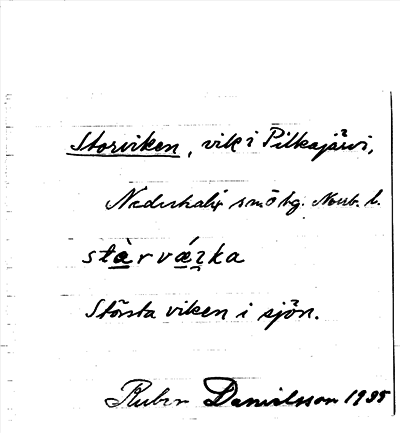 Storviken, vik i Pitkäjärvi,
Nederkalix smötg. Norrb. l.
stàrváʒka
Största viken i sjön.
Ruben Danielsson 1935